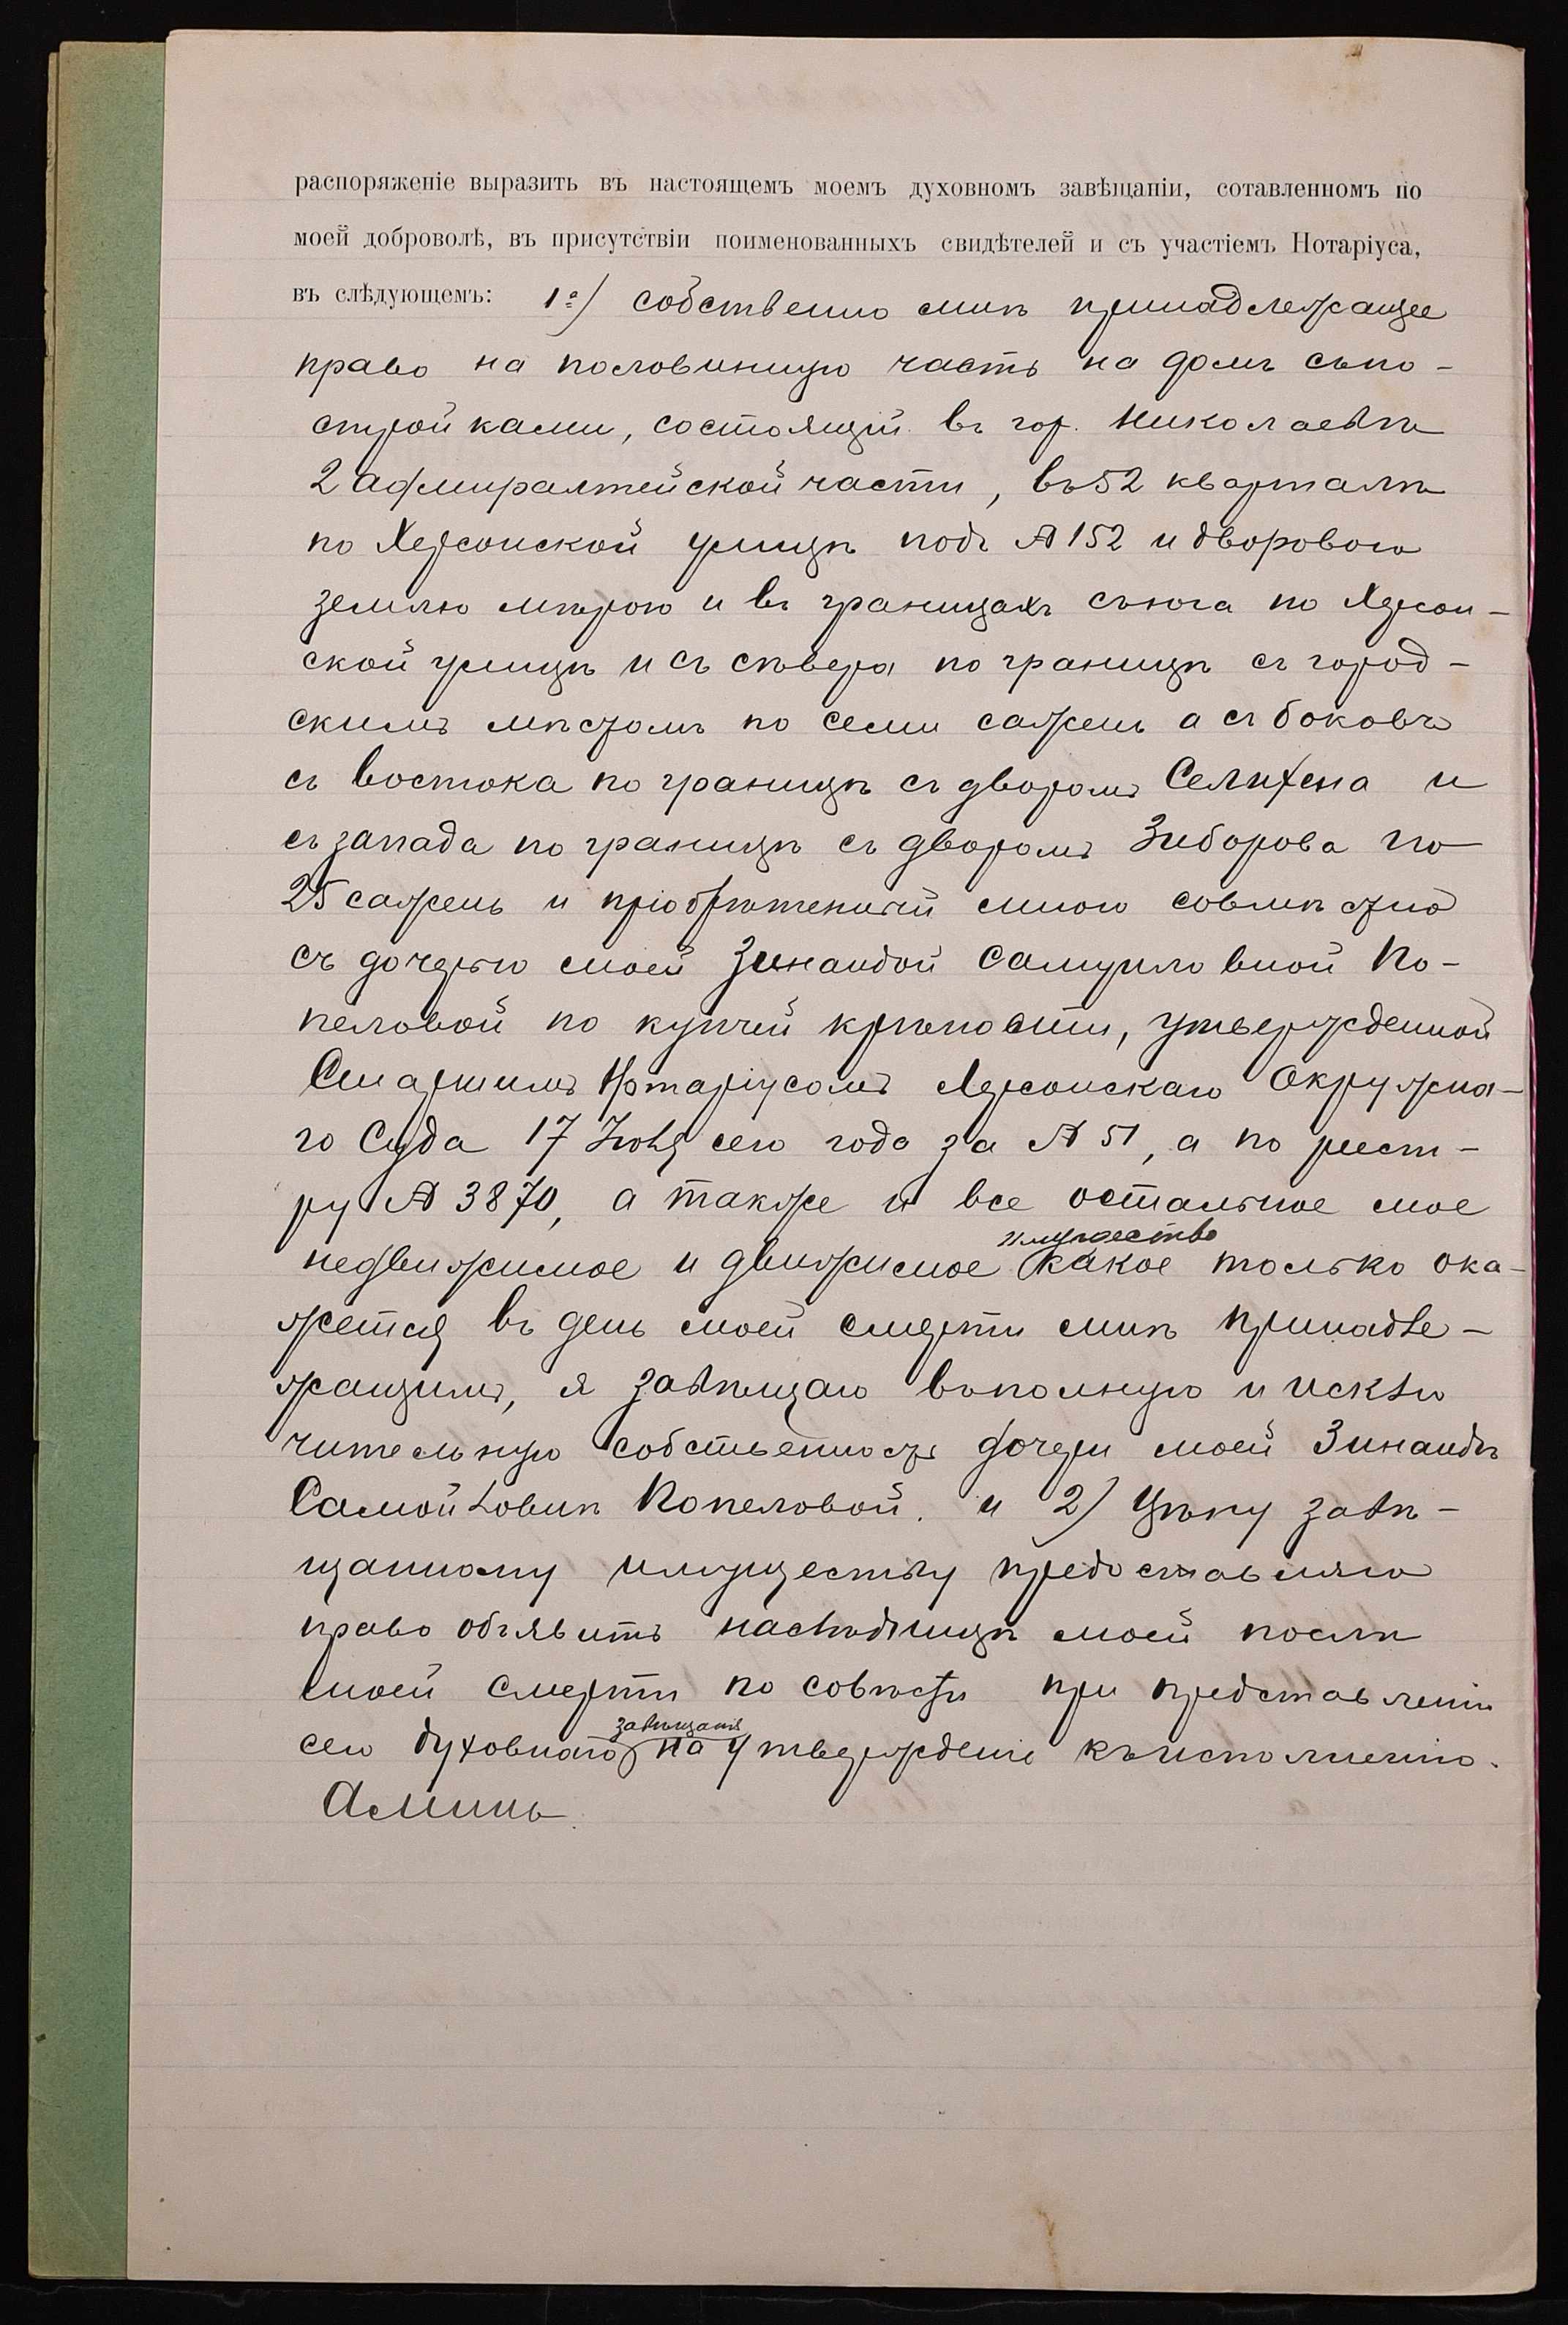 распоряженіе выразить въ настоящемъ моемъ духовномъ завѣщаніи, сотавленномъ по
моей доброволѣ, въ присутствіи поименованныхъ свидѣтелей и съ участіемъ Нотаріуса,
въ слѣдующемъ: 1е) собственно мнѣ принадлежащее
право на половинную часть на домъ съ по-
стройками, состоящій въ гор. Николаевѣ
2 адмиралтейской части, въ 52 кварталѣ
по Херсонской улицѣ подъ № 152 и дворовою
землю мѣрою и въ границахъ съ юга по Херсон-
ской улицѣ и съ сѣвера по границѣ съ город-
скимъ мѣстомъ по семи сажень а съ боковъ
съ востока по границѣ съ дворомъ и
съ запада по границѣ съ дворомъ Зиборова по
25 сажень и пріобрѣтенный мною совмѣстно
съ дочерью моей Зинаидой Самуиловной Ко-
пеловой по купчей крѣпости, утвержденной
Старшимъ Нотаріусомъ Херсонскаго Окружна-
го Суда 17 сего года за № 51, а по реест-
ру № 3870, а также и все остальное мое
недвижимое и движимое имущество какое только ока-
жется въ день моей смерти мнѣ принадле-
жащимъ, я завѣщаю въ полную и исклю
чительную собственность дочери моей Зинаидѣ
Самойловнѣ Копеловой. и 2) Цѣну завѣ-
щанному имуществу предоставляю
право объявить наслѣдницѣ моей послѣ
моей смерти по совѣсти при представленіи
сего духовнаго завѣщанія на утвержденіе къ исполненію.
Аминь